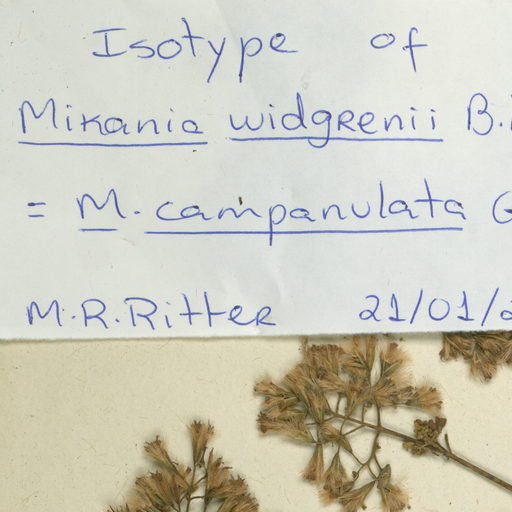 Isotype of
Mikania widgrenii B.
= M. campanulata G
M.R.Ritter 21/01/2